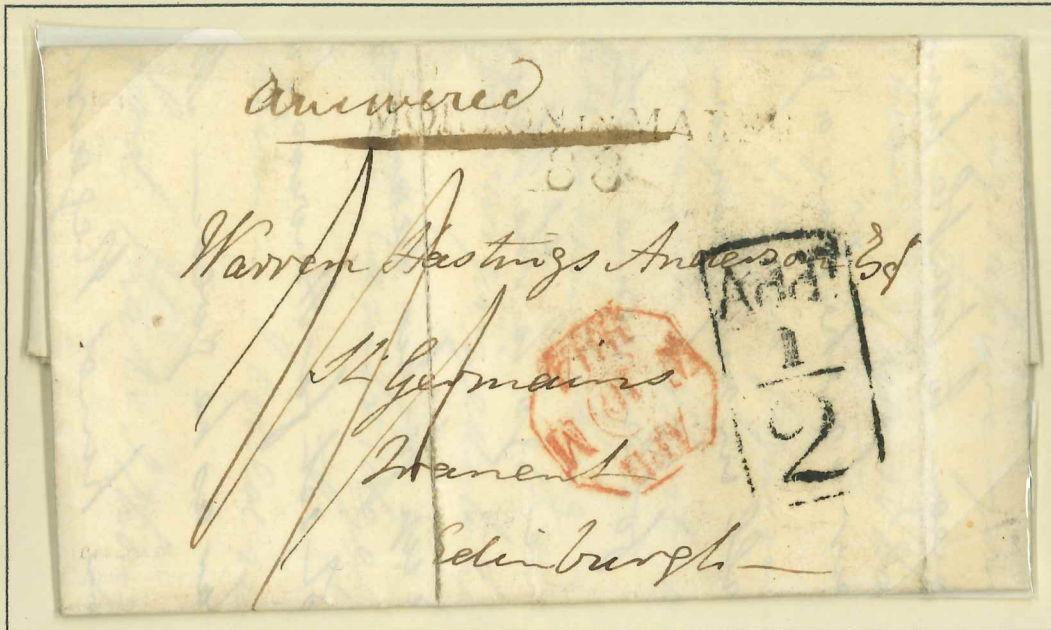 answered
MORETON IN MARSH
88
Warren Hastings Anderson Esq
St Germains
Tranent
Edinburgh
Add.
1
2